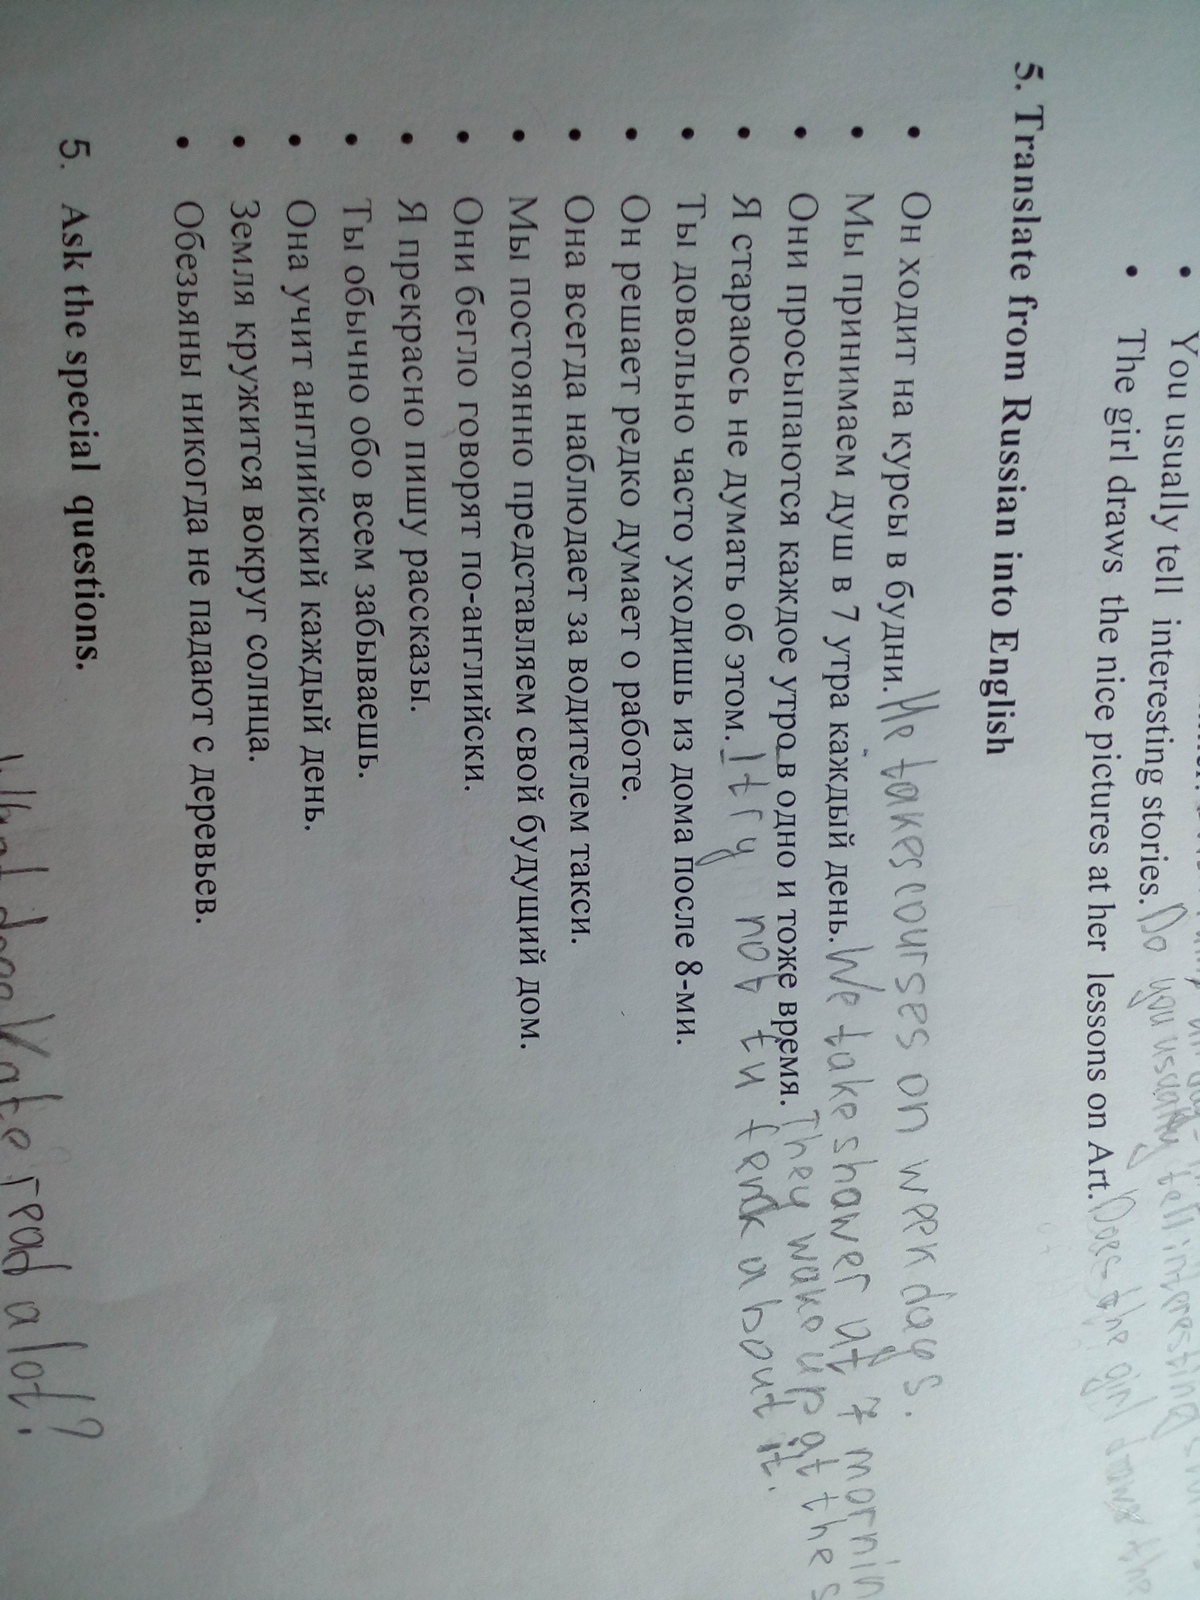 You usually tell interesting stories. Do you usually tell interesting
The girl draws the nice pictures at her lessons on Art. Does the girl draws the
5. Translate from Russian into English
Он ходит на курсы в будни. He takes courses on week days.
Мы принимаем душ в 7 утра каждый день. We take shower at 7 mornin
Они просыпаются каждое утро в одно и тоже время. They wake up at the s
Я стараюсь не думать об этом. I try not tu fenk about it.
Ты довольно часто уходишь из дома после 8-ми.
Он решает редко думает о работе.
Она всегда наблюдает за водителем такси.
Мы постоянно представляем свой будущий дом.
Они бегло говорят по-английски.
Я прекрасно пишу рассказы.
Ты обычно обо всем забываешь.
Она учит английский каждый день.
Земля кружится вокруг солнца.
Обезьяны никогда не падают с деревьев.
5. Ask the special questions.
What does Kate read a lot?